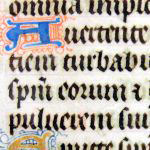 omnia imple
Auertente
ciem turbabu
sp̄m eorum
puluerem su